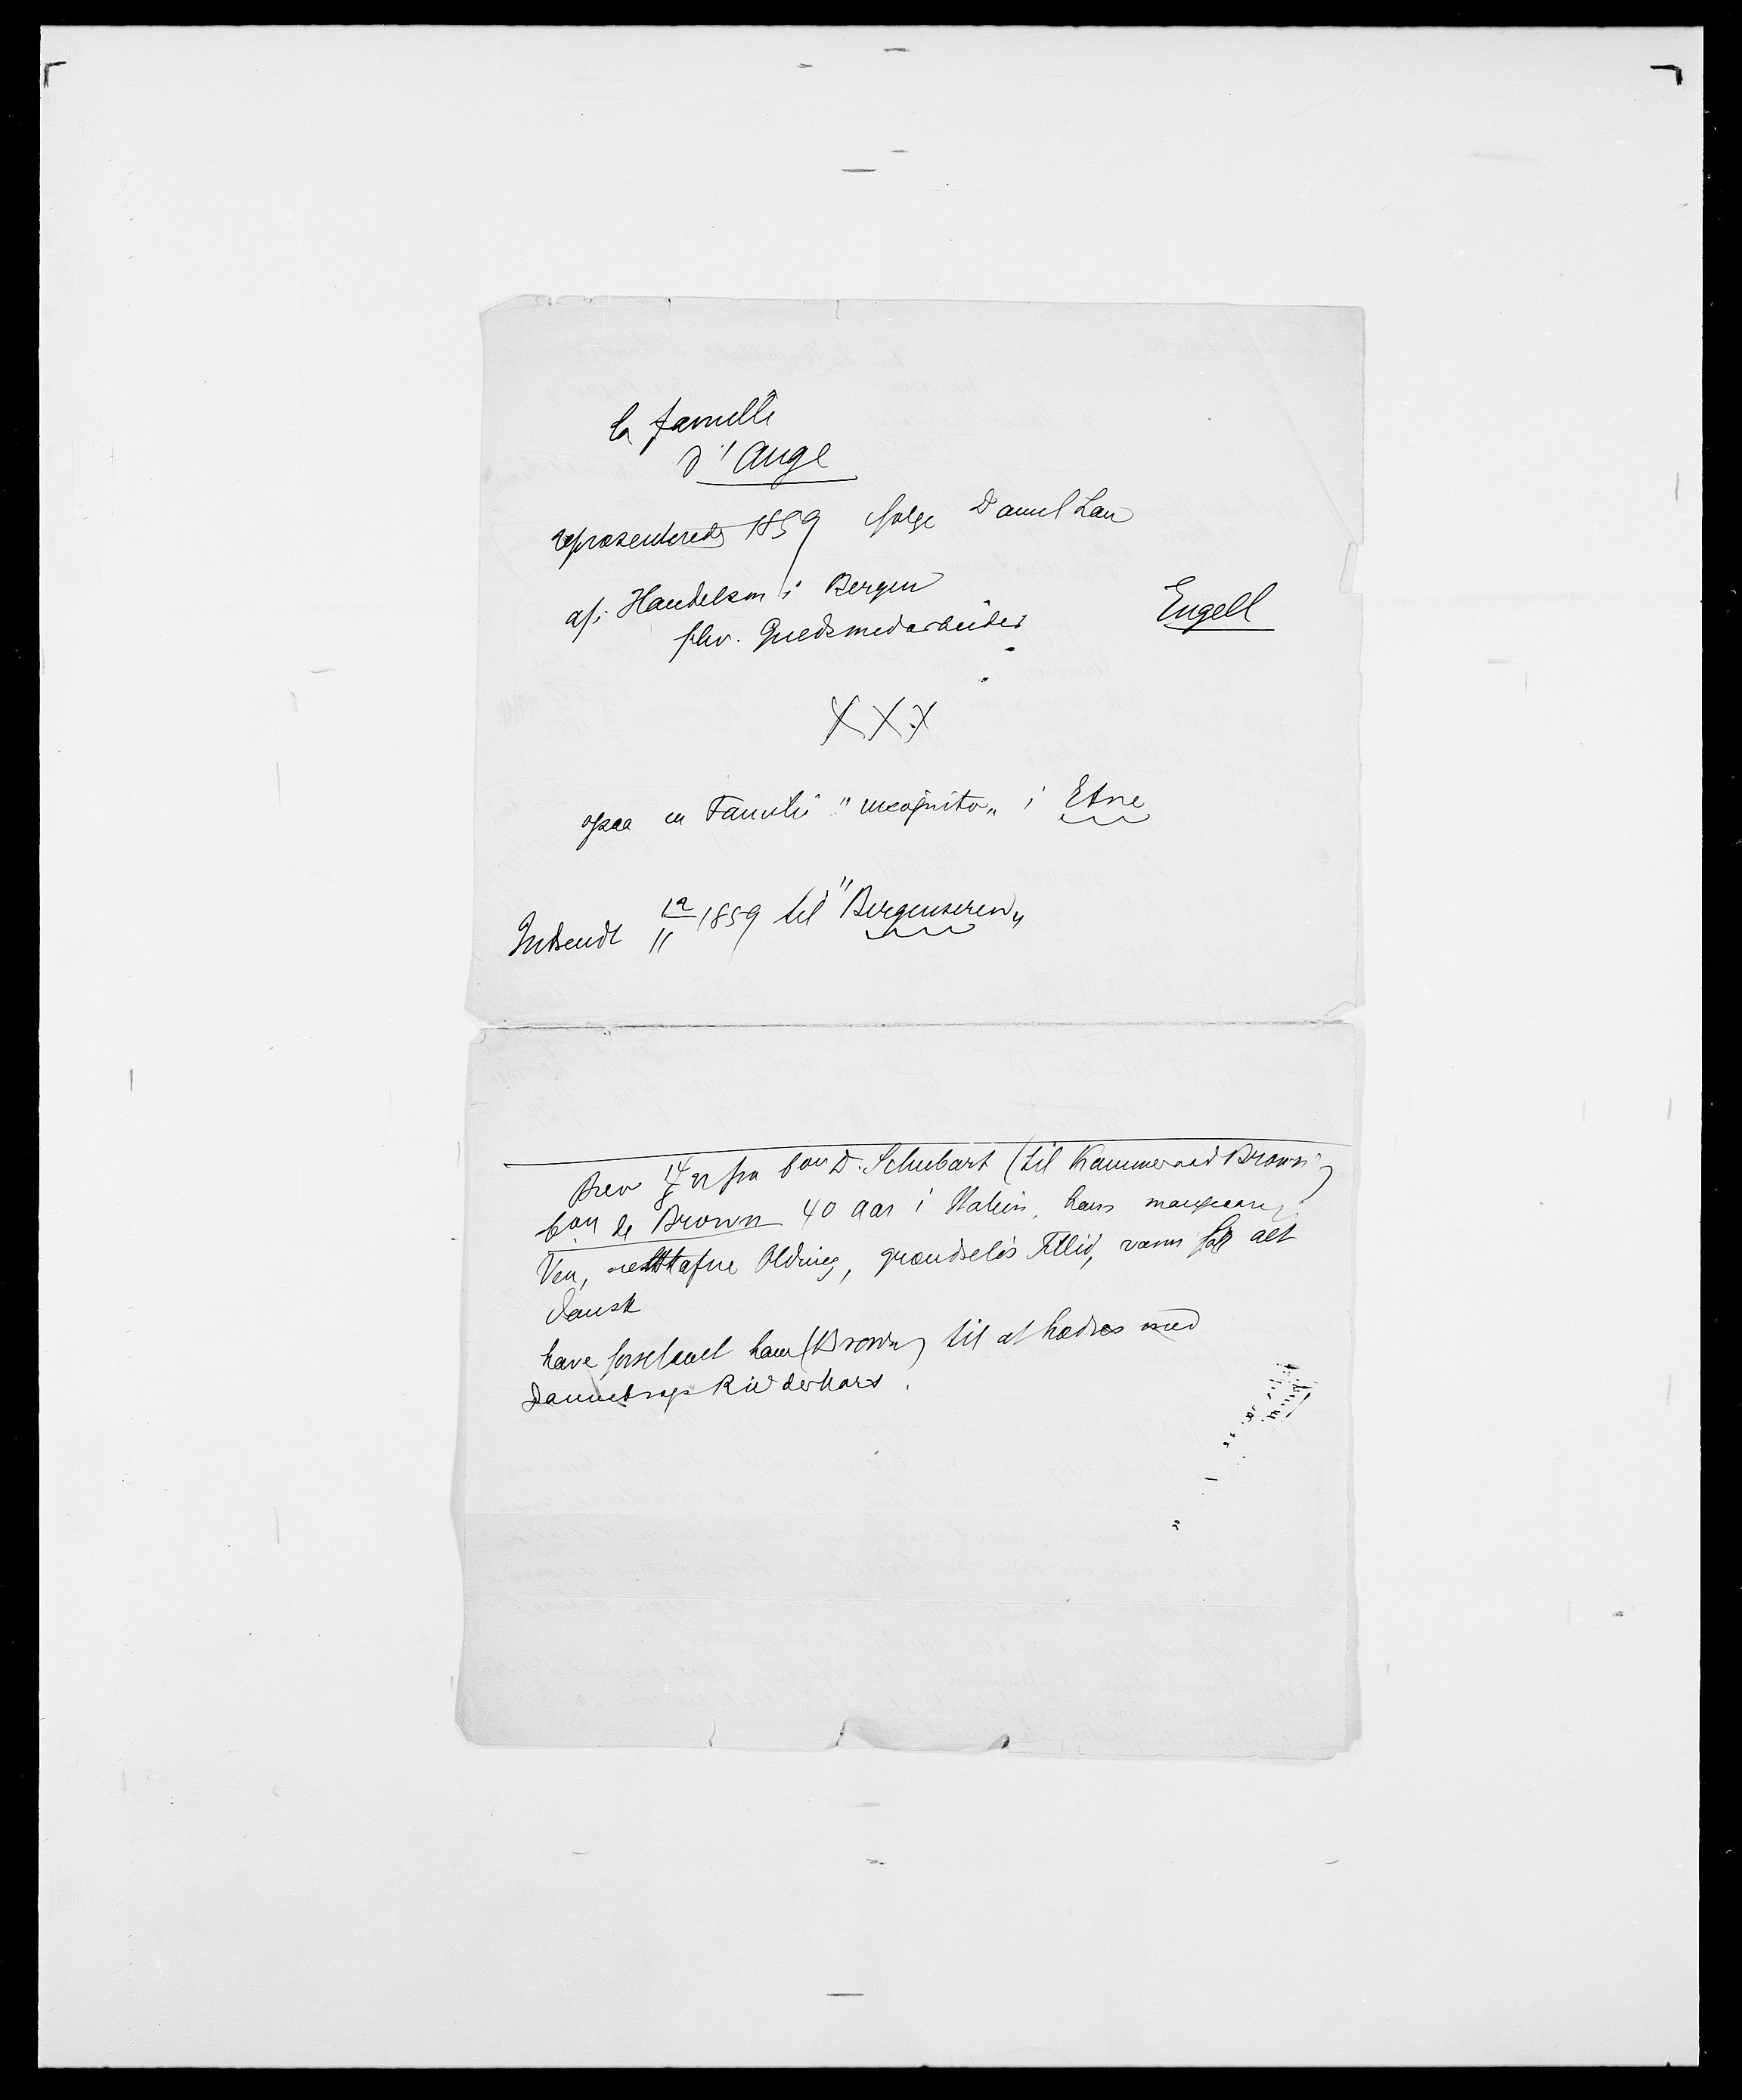 la famille
d'Auge
repræsenteredes 1859 ifølge Daniel Lau
af: Handelsm i Bergen
fhv. Guldsmedarbeider
Engell
XXX
ogsaa en Familie "incognito" i Etne
Indsendt 12/11 1859 til "Bergenseren"
Brev 14/8 22 fra bon D. Schubart (til Kammerraad Brown)
bon de Brown 40 aar i Italien, hans mangeaarig
Ven, Olding, grændseløs Tillid, varm for alt
dansk
have foreslaaet ham (Brown) til at hædres med
Dannebrogs Ridderkors.